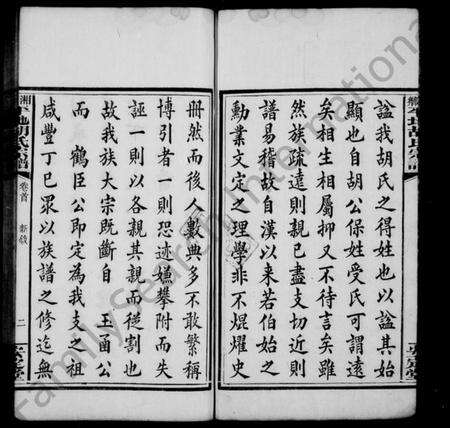 諡我胡氏之得姓也以諡其始
顯也自胡公保姓受氏可謂遠
矣相生相屬抑又不待言矣雖
然族疏遠則親已盡支切近則
譜易稽故自漢以来若伯始之
勳業文定之理學非不焜燿史
冊然而後人數典多不敢繁稱
博引者一則恐迹嫌攀附而失
誣一則以各親其親而從割也
故我族大宗既斷自 王函公
而 鶴臣公即定為我支之祖
咸豐丁巳眾以族譜之修迄無
湘 胡氏宗譜
卷首
新敘
二
FamilySearch International